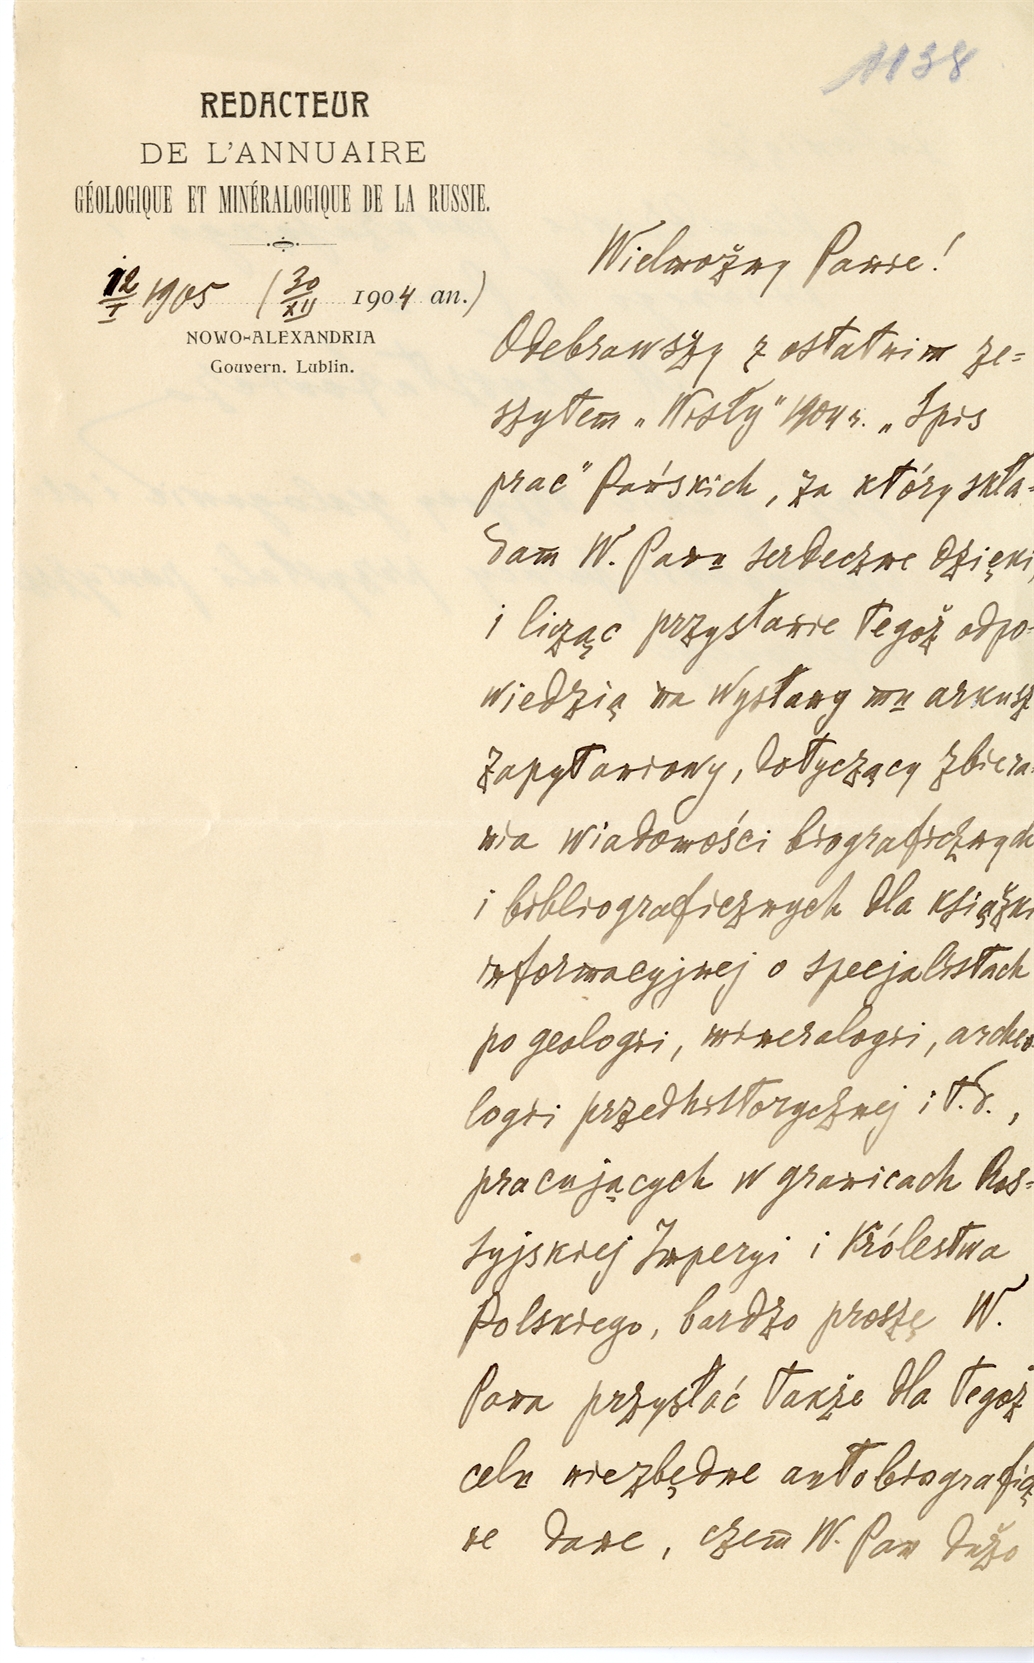 1138
REDACTEUR
DE L'ANNUAIRE
GÉOLOGIQUE ET MINÉRALOGIQUE DE LA RUSSIE.
12/I 1905 (30/XII 1904 an.)
NOWO-ALEXANDRIA
Gouvern. Lublin.
Wielmożny Panie!
Odebrawszy z ostatnim ze=
szytem „Wisły" 1904 r. „Spis
prac" Pańskich, za który skła-
dam W. Panu serdeczne dzięki,
i licząc przysłanie tegoż odpo-
wiedzią na wysłany mu arkusz
zapytaniowy, dotyczący zbiera-
nia wiadomości biograficznych
i bibliograficznych dla książki
informacyjnej o specjalistach
po geologii, mineralogii, archeo-
logii przedhistorycznej i t. d.,
pracujących w granicach Ros=
syjskiej Imperyi i Królestwa
Polskiego, bardzo proszę W.
Pana przysłać także dla tegoż
celu niezbędne autobiograficz
ne dane, czem W. Pan dużo